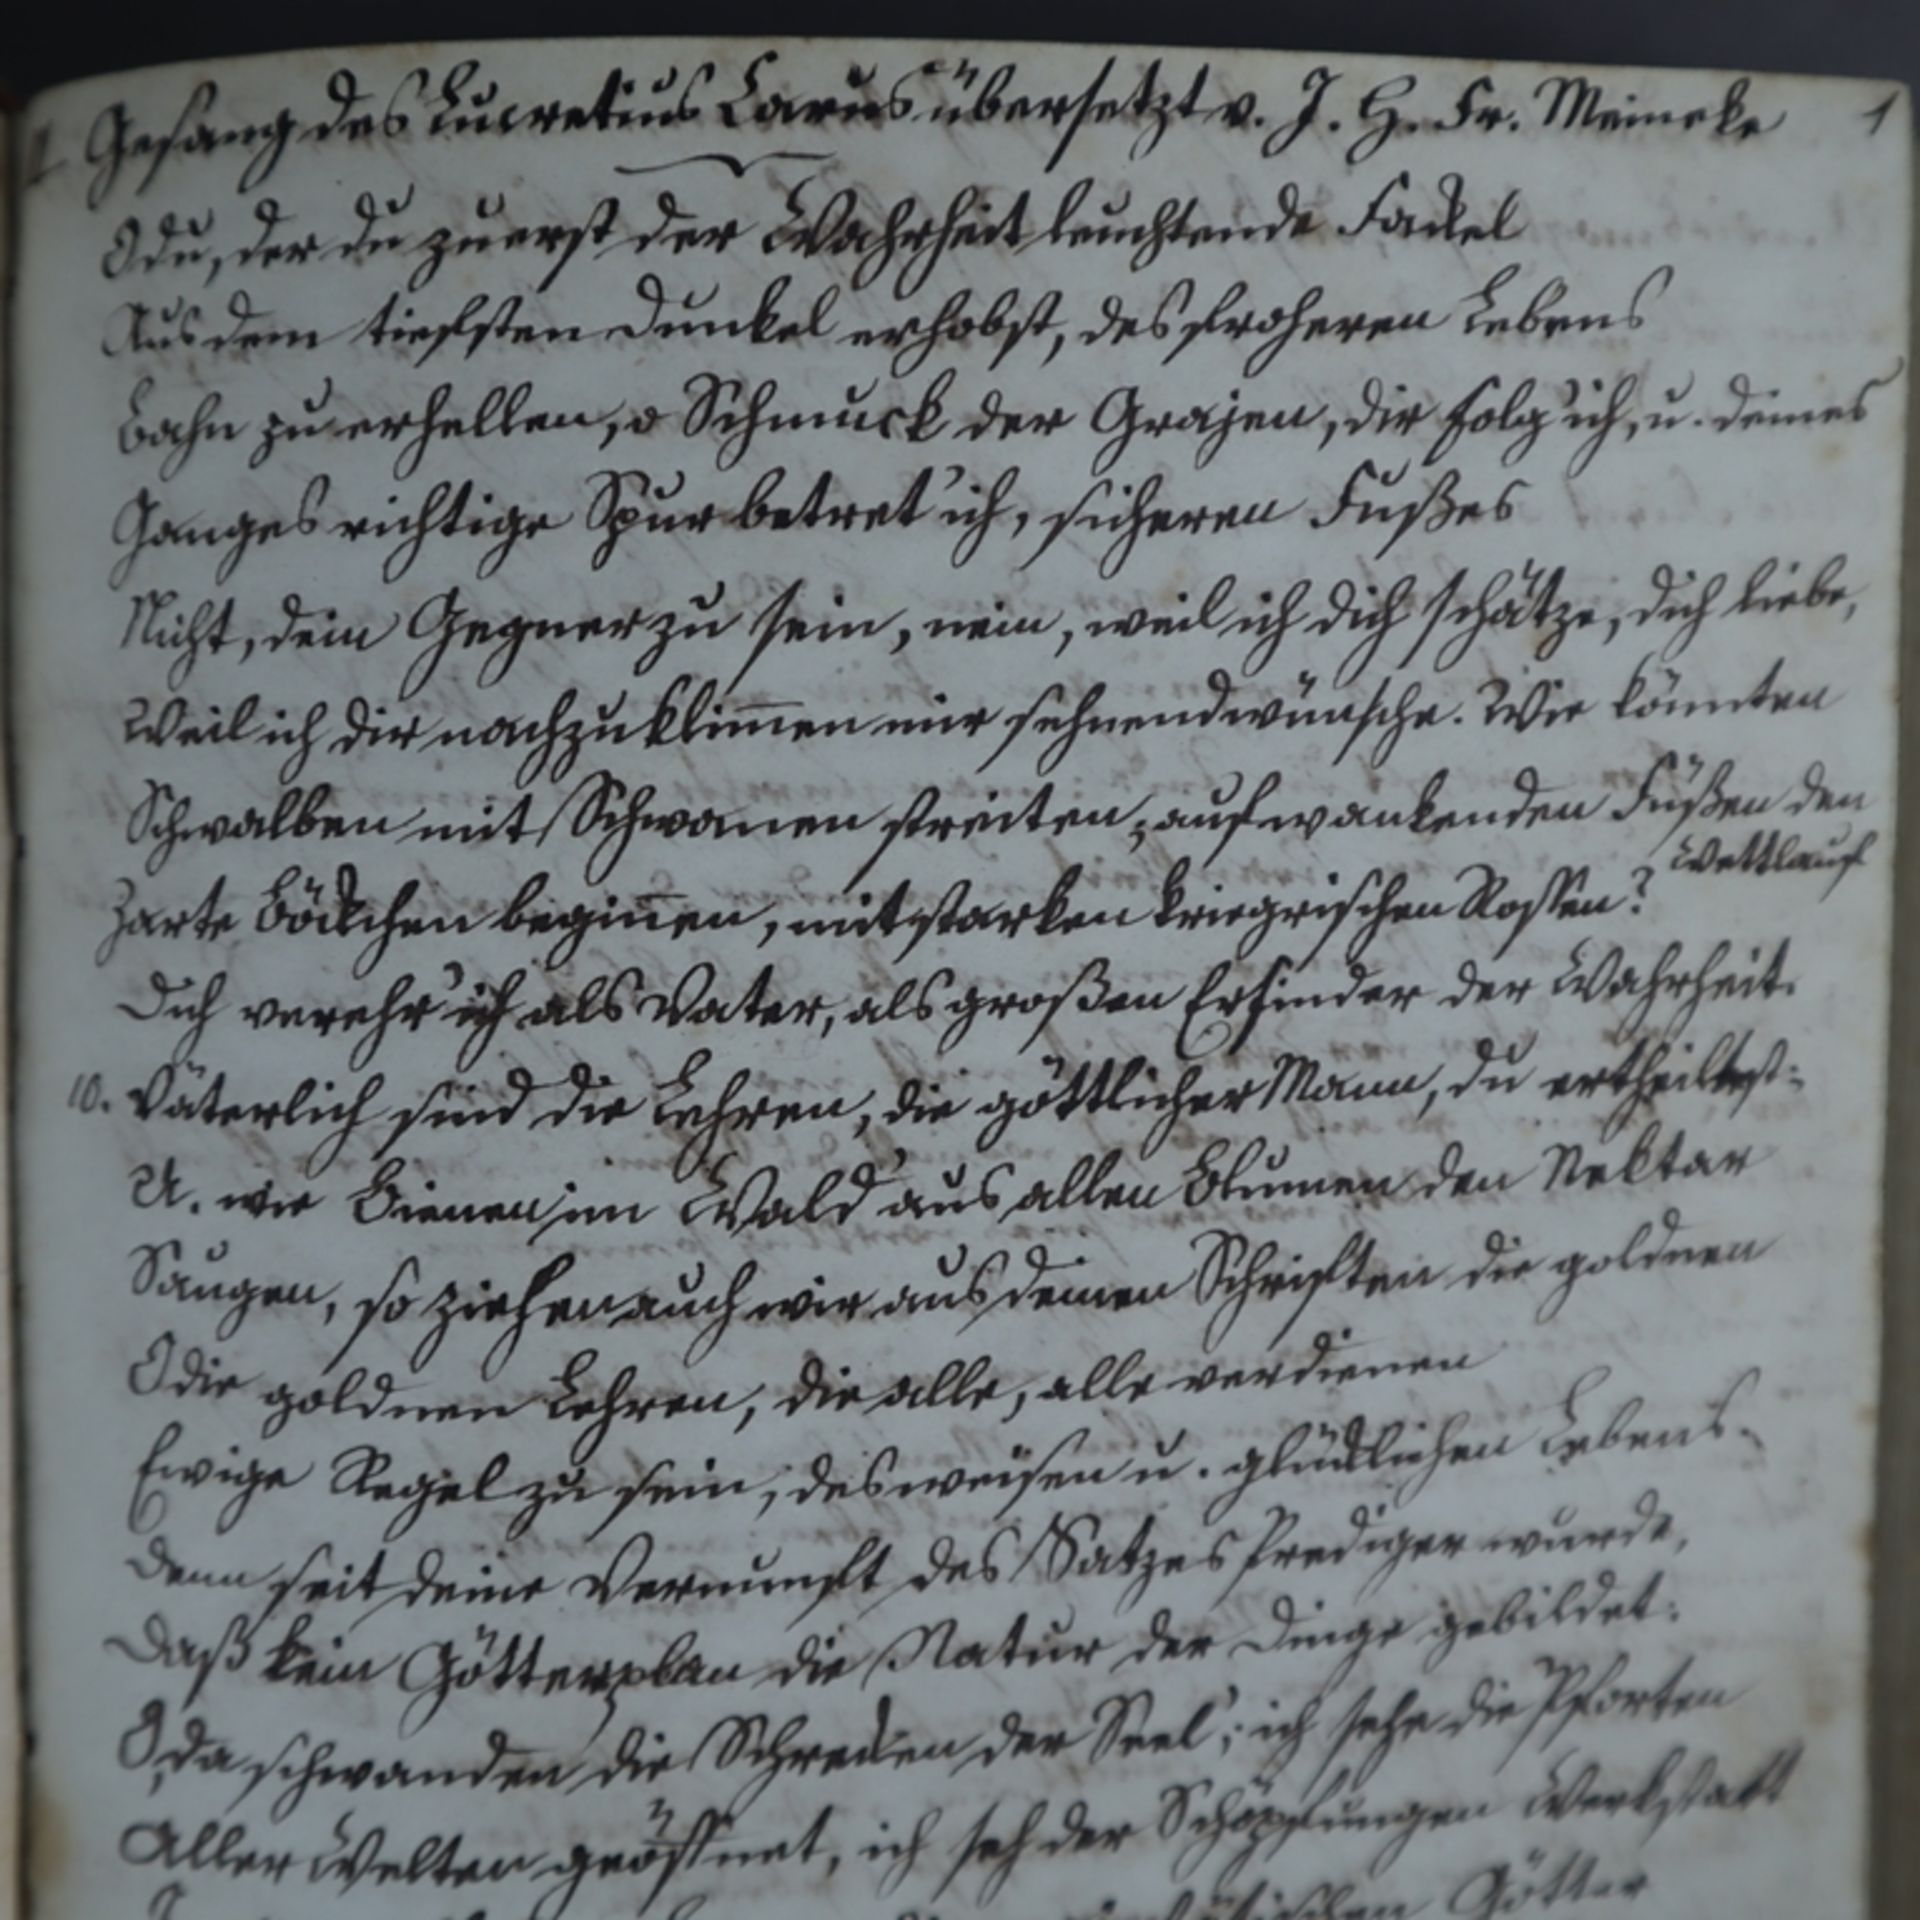 Gesang des Lucretius Carus übersetzt v. J. H. Fr. Meineke 1
O du, der du zuerst der Wahrheit leuchtende Fackel
Aus dem tiefsten Dunkel erhobst, des froheren Lebens
Bahn zu erhellen, o Schmuck der Grajen, dir folg' ich, u. deines
Ganges richtige Spur betret' ich, sicheren Fußes
Nicht, dein Gegner zu sein, nein, weil ich dich schätze, dich liebe,
Weil ich dir nachzuklim̄en nur sehnend wünsche. Wie könnten
Schwalben mit Schwanen streiten, auf wankenden Füßen den
Wettlauf
Zarte Böckchen begin̄en, mit starken kriegrischen Rossen?
Dich verehr' ich als Vater, als großen Erfinder der Wahrheit.
10. Väterlich sind die Lehren, die göttlicher Mann, du ertheiltest:
U. wie Bienen im Wald aus allen Blumen den Nektar
Saugen, so ziehen auch wir aus deinen Schriften die goldnen
O die goldnen Lehren, die alle, alle verdienen
Ewige Regel zu sein, des weisen u. glücklichen Lebens.
Denn seit deine Vernunft des Satzes Prediger wurde,
Daß kein Götterplan die Natur der Dinge gebildet:
O, da schwanden die Schrecken der Seel'; ich sehe die Pforten
Aller Welten geöffnet, ich seh der Schöpfungen Werkstatt
Götter